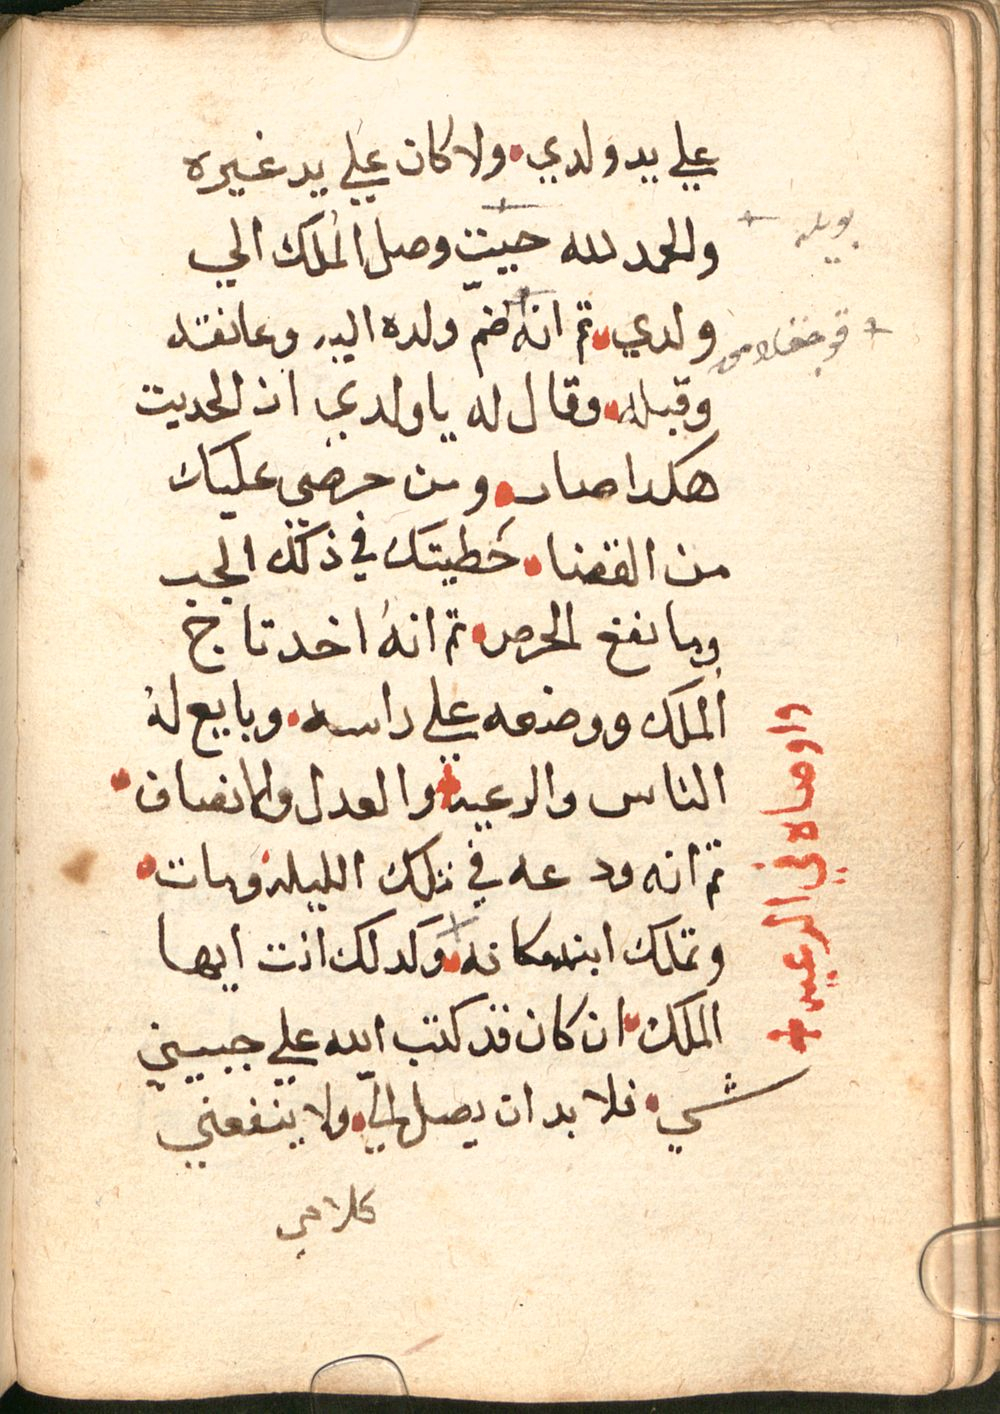 علي يد ولدي • ولا كان علي يد غيره
والحمد لله حيت وصل المُلك الي
ولدي • تم انه ضم ولده اليه وعانقه
وقبله • وقال له يا ولدي ان الحديت
هكدا صار • ومن حرصي عليك
من القضا • حَطيتك في ذلك الجب
وما نفع الحرص • تم انهُ اخد تاج
المُلك ووضعه علي راسه • وبايع لهُ
الناس والرعيه + والعدل والانصاف •
تم انه ودعه في تلك الليله ومات •
وتملك ابنه مكانه • وكدلك انت ايها
الملك • ان كان قد كتب الله علي جبيني
شي • فلا بد ان يصل الي • ولا ينفعني
كلامي
بويله +
+
واوصاه في الرعيه +